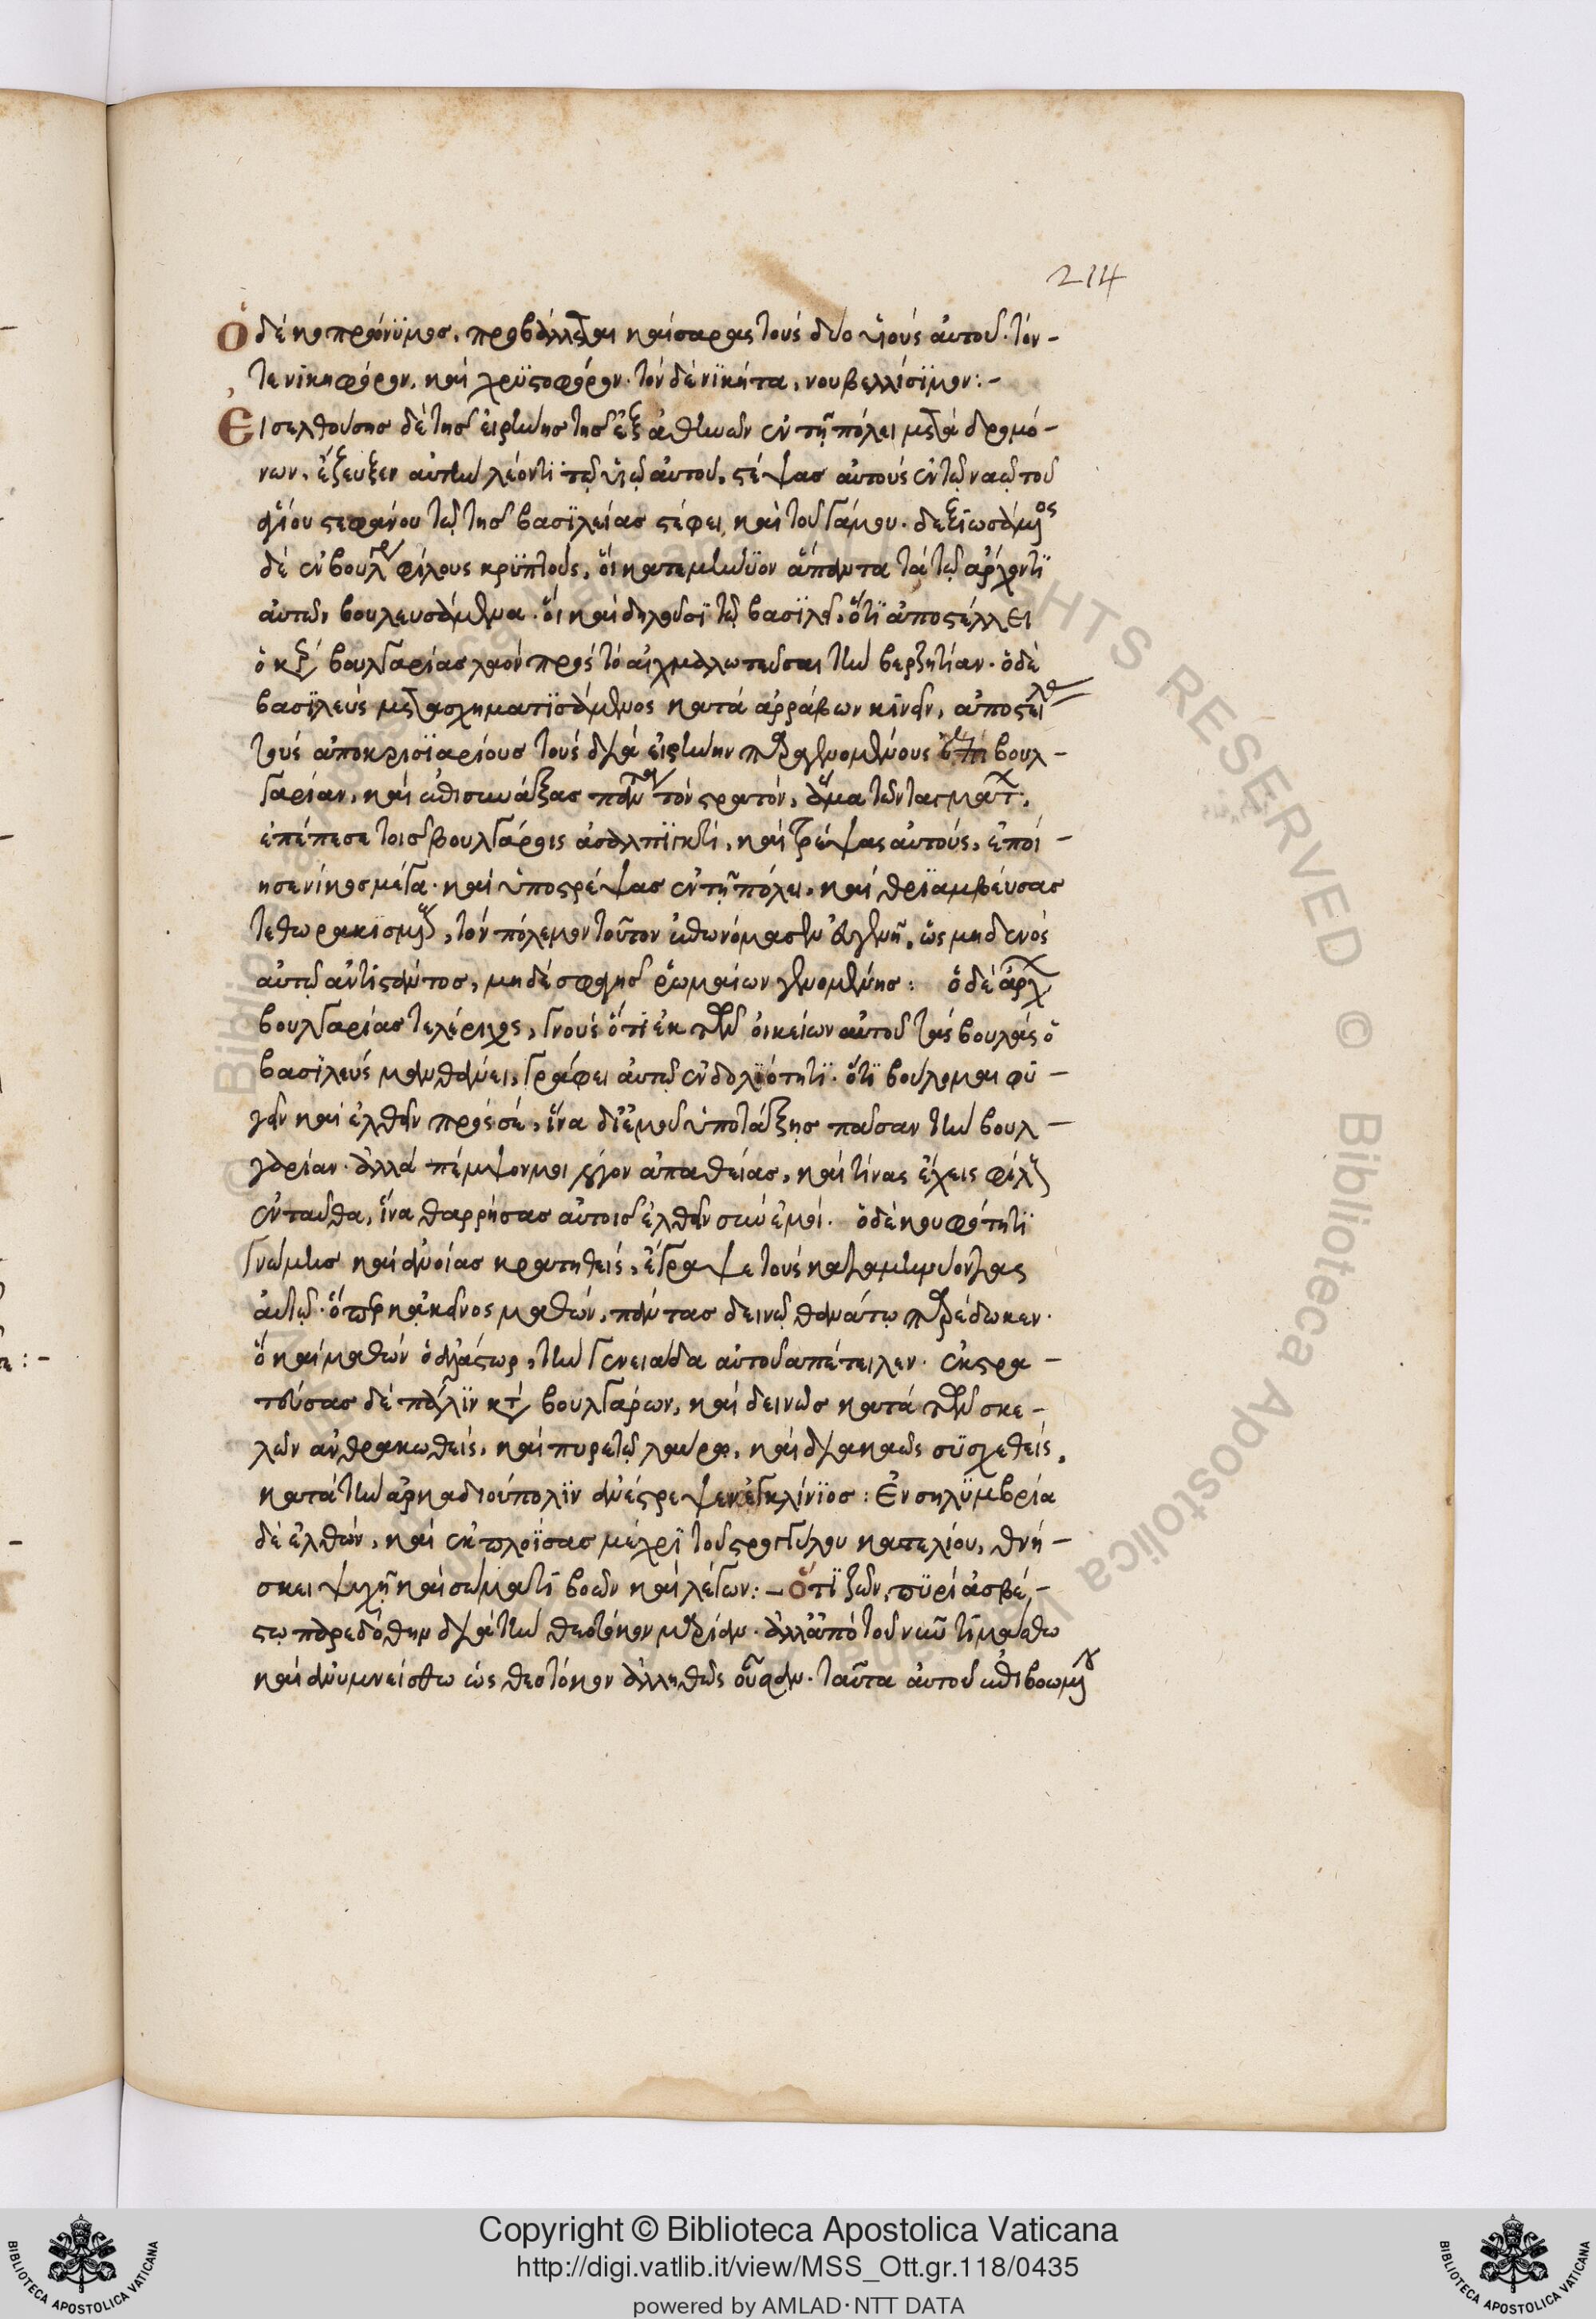 214
Ὁ δὲ κοπρώνϋμος, προβάλλεται καίσαρας τοὺς δύο υἱοὺς αὐτοῦ· τόν-
τε νικηφόρον, καὶ χρϋστοφόρον· τὸν δὲ νϊκήτα, νουβελλίσϊμον:-
Εἰσελθούσης δὲ τῆς εἰρήνης τῆς ἐξ ἀθηνῶν ἐν τῇ πόλει μετὰ δρομό-
νων, ἔζευξεν αὐτὴν λέοντι τῷ υἱῷ αὐτοῦ, στέψας αὐτοὺς ἐν τῷ ναῷ τοῦ
ἁγίου στεφάνου τῷ τῆς βασϊλείας στέφει, καὶ τοῦ γάμου. δεξϊωσάμενος
δὲ ἐν βουλγαρ φίλους κρϋπτοὺς, οἳ κατεμήνϋον ἅπαντα τὰ τῷ ἄρχοντϊ
αὐτῶν βουλευσάμενα. οἳ καὶ δηλοῦσϊ τῷ βασϊλεῖ, ὅτϊ ἀποστέλλει
ὁ κύρ βουλγαρίας λαὸν πρὸς τὸ αἰχμαλωτεῦσαι τὴν βερζητίαν. ὁ δὲ
βασϊλεὺς μετασχηματϊσάμενος κατὰ ἀρράβων κινεῖν, ἀποστείλα
τοὺς ἀποκρισϊαρίους τοὺς διὰ εἰρήνην παραγενομένους ἐπὶ βουλ-
γαρίαν, καὶ ἐπισυνάξας πάντα τὸν στρατόν, ἅμα τῶν ταγμάτ,
ἐπέπεσε τοῖς βουλγάροις ἀσαλπϊγκτί, καὶ τρέψας αὐτούς, ἐποί-
ησε νίκος μέγα. καὶ ὑποστρέψας ἐν τῇ πόλει, καὶ θρϊαμβεύσας
τεθωρακισμένος, τὸν πόλεμον τοῦτον ἐπωνόμασεν εὐγενῆ, ὡς μηδενὸς
αὐτῷ ἀντϊστάντος, μηδὲ σφαγῆς ῥωμαίων γενομένης: ὁ δὲ ἄρχ
βουλγαρίας τελέριχος, γνοὺς ὅτϊ ἐκ τῶν οἰκείων αὐτοῦ τὰς βουλὰς ὁ
βασϊλεὺς μανθάνει, γράφει αὐτῷ ἐν δολϊότητϊ. ὅτϊ βούλομαι φϋ-
γεῖν καὶ ἐλθεῖν πρὸς σέ, ἵνα δι᾽ ἐμοῦ ὑποτάξῃς πᾶσαν τὴν βουλ-
γαρίαν. ἀλλὰ πέμψον μοι λόγον ἀπαθείας, καὶ τίνας ἔχεις φίλους
ἐνταῦθα, ἵνα θαρρήσας αὐτοῖς ἐλθεῖν σὺν ἐμοί. ὁ δὲ κουφότητϊ
γνώμης καὶ ἀνοίας κρατηθείς, ἔγραψε τοὺς καταμηνύοντας
αὐτῷ. ὅπερ κἀκεῖνος μαθών, πάντας δεινῷ θανάτῳ παρέδωκεν.
ὃ καὶ μαθὼν ὁ ἀλάστωρ, τὴν γενειάδα αὐτοῦ ἀπέτειλεν. ἐκστρα-
τεύσας δὲ πάλϊν κτ βουλγάρων, καὶ δεινῶς κατὰ τῶν σκε-
λῶν ἀνθρακωθείς, καὶ πυρετῷ λαύρῳ, καὶ διακαῶς σϋσχεθείς,
κατὰ τὴν ἀρκαδιούπολϊν ἀνέστρεψεν ἐγκλίνϊος: Ἐν σηλϋμβρίᾳ
δὲ ἐλθών, καὶ ἐκπλοΐσας μέχρϊ τοῦ στρογγύλου καστελίου, θνή-
σκει ψυχῇ καὶ σώματϊ βοῶν καὶ λέγων:- Ὅτϊ ζῶν, πϋρὶ ἀσβέ-
στῳ παρεδόθην διὰ τὴν θεοτόκον μαρίαν. ἀλλ᾽ ἀπὸ τοῦ νῦν τιμάσθω
καὶ ἀνυμνείσθω ὡς θεοτόκον ἀληθῶς οὖσαν. ταῦτα αὐτοῦ ἐπιβοωμένου
Copyright © Biblioteca Apostolica Vaticana
http://digi.vatlib.it/view/MSS_Ott.gr.118/0435
powered by AMLAD·NTT DATA